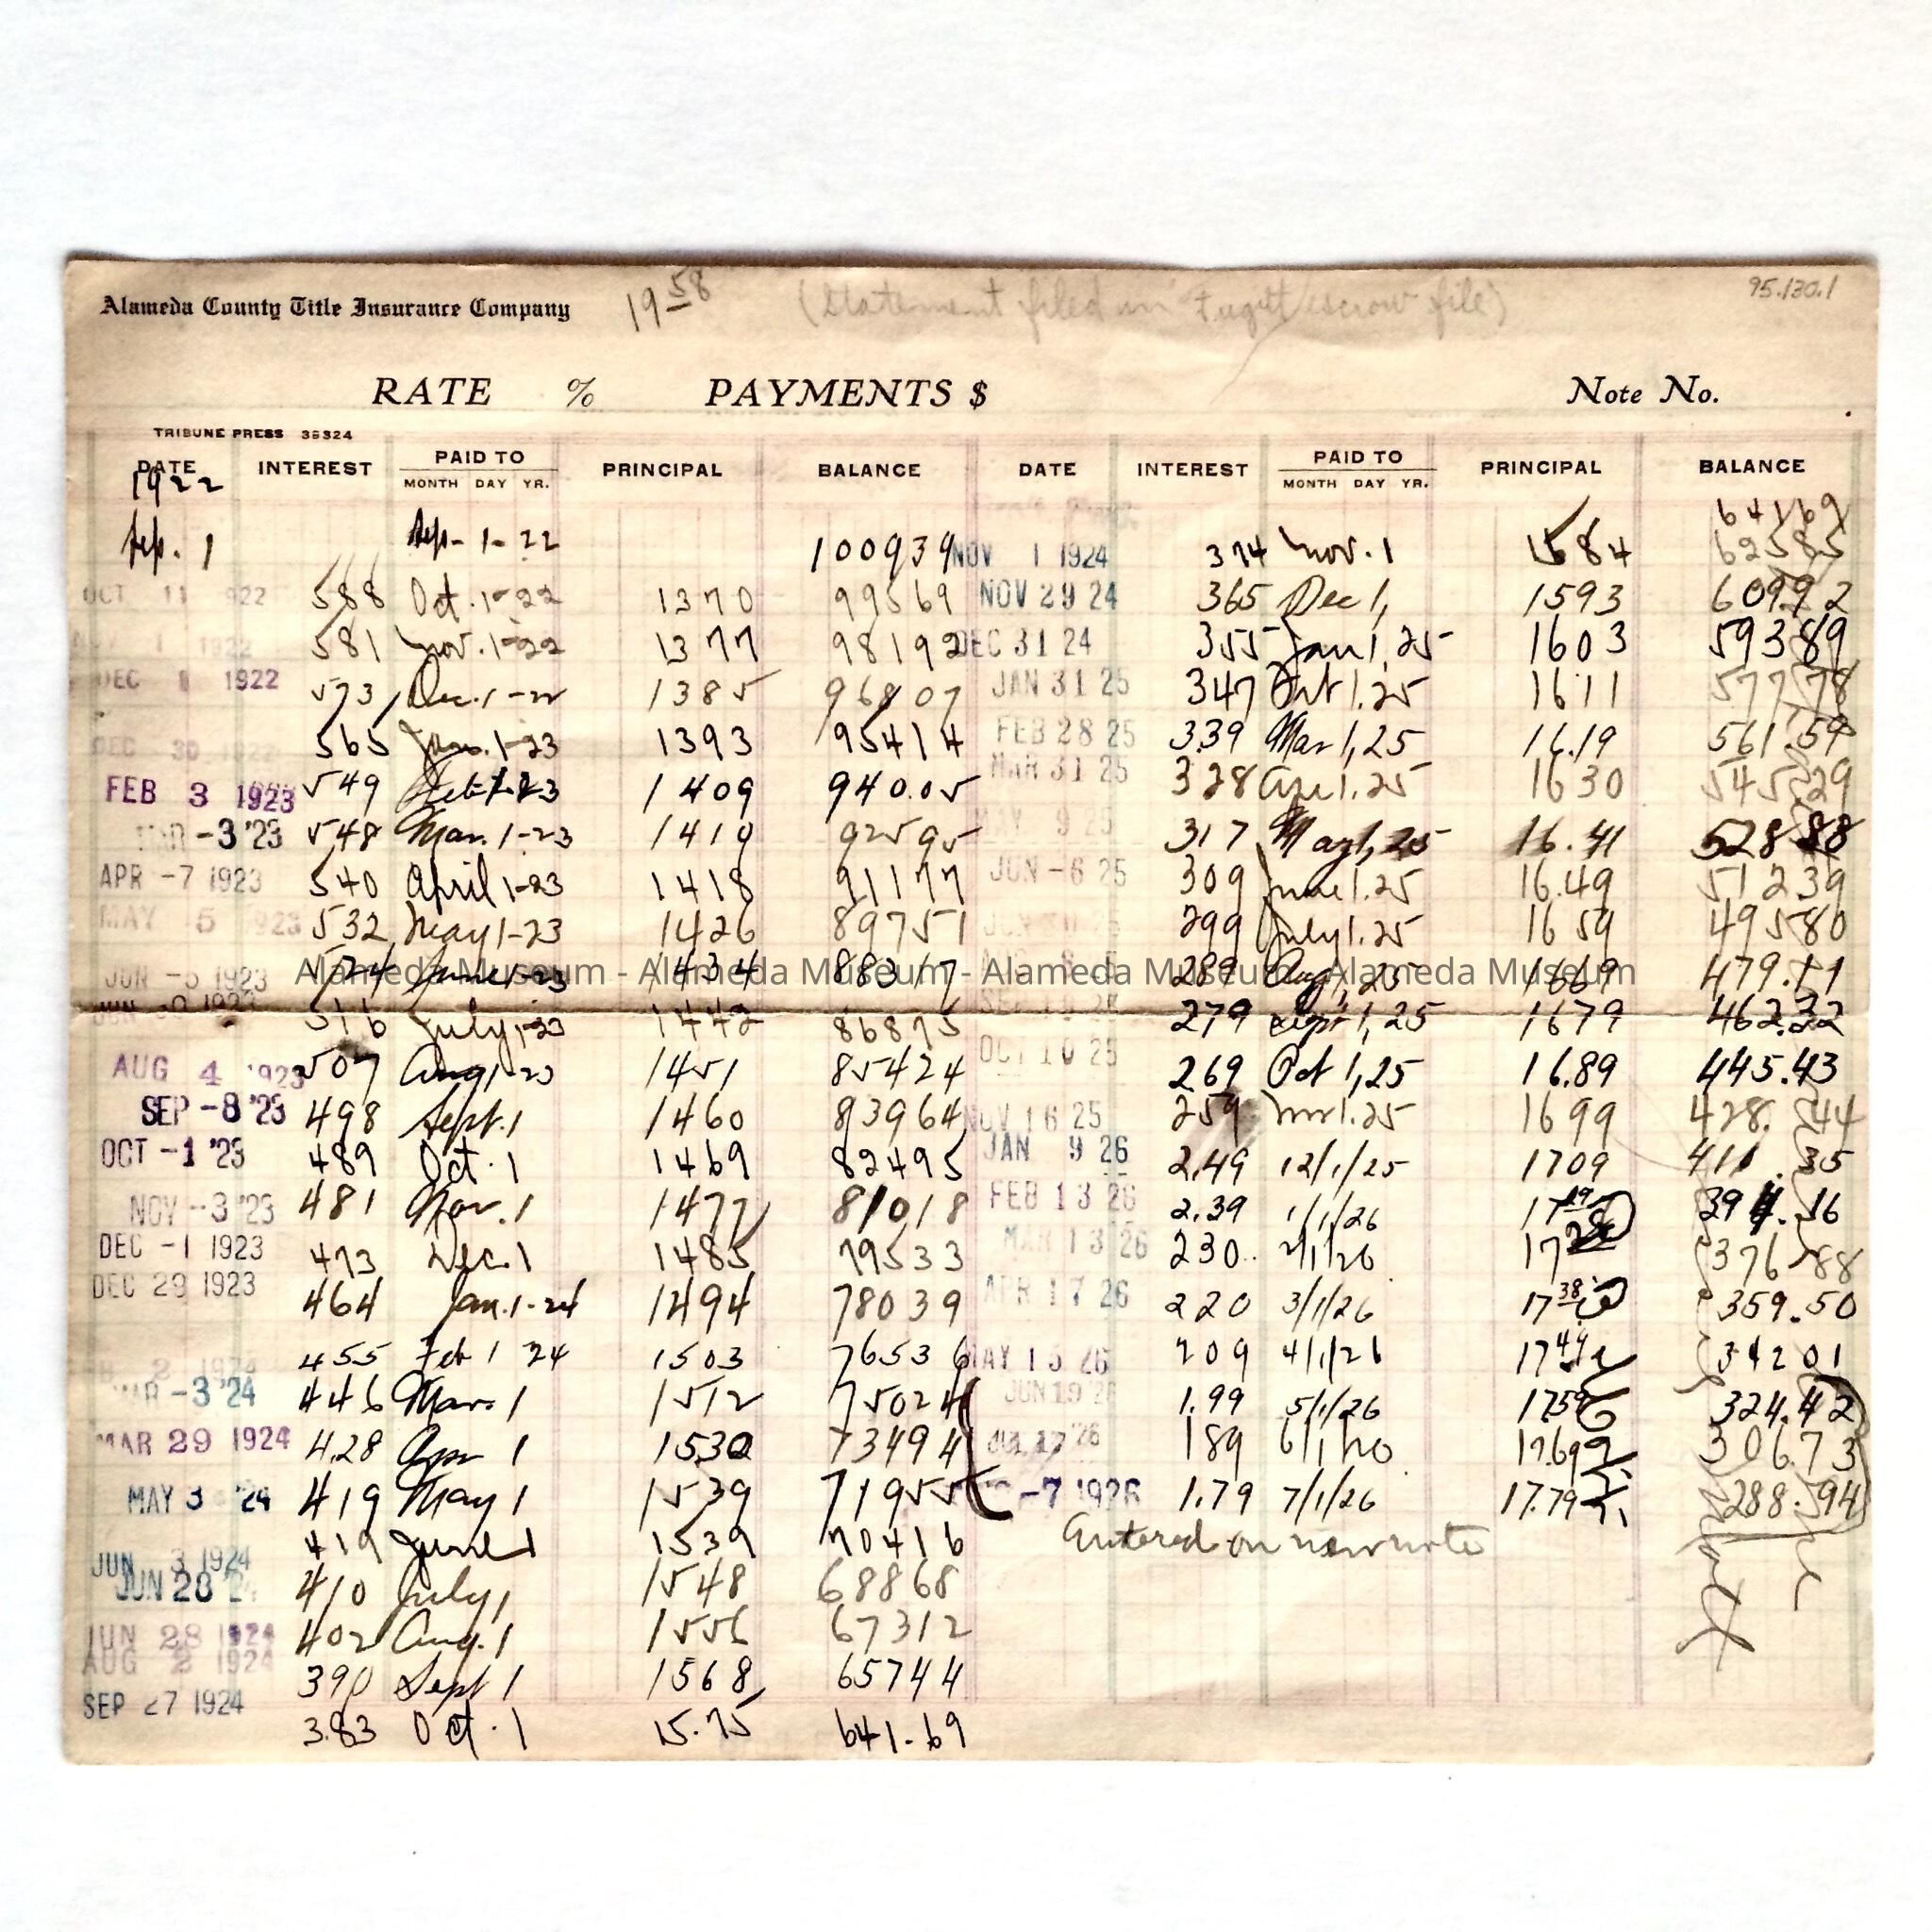 Alameda County Title Insurance Company 19 58 (Statement filed in escrow file) 95.130.1
RATE % PAYMENTS $ Note No.
TRIBUNE PRESS 36324
DATE INTEREST PAID TO MONTH DAY YR. PRINCIPAL BALANCE DATE INTEREST PAID TO MONTH DAY YR. PRINCIPAL BALANCE
1922 64169
Sep. 1 Sep- 1- 22 100939 NOV 1 1924 374 Nov. 1 1584 62585
OCT 11 1922 588 Oct. 1-22 1370 99569 NOV 29 24 365 Dec 1, 1593 60992
NOV 1 1922 581 Nov. 1-22 1377 98192 DEC 31 24 355 Jan 1, 25 1603 59389
DEC 1922 573 Dec. 1-22 1385 96807 JAN 31 25 347 1.25 1611 57778
DEC 30 1922 565 Jan. 1-23 1393 95414 FEB 28 25 3.39 Mar 1, 25 16.19 561 59
FEB 3 1923 549 Feb 1-23 1409 940.05 MAR 31 25 328 Apr 1.25 1630 54529
MAR -3 '23 548 Mar. 1-23 1410 92595 MAY 9 25 317 May 1, 25 16.41 528 88
APR -7 1923 540 April 1-23 1418 91177 JUN -6 25 309 June 1.25 16.49 51239
MAY 5 1923 532 May 1-23 1426 89751 299 July 1.25 1659 49580
JUN -5 1923 524 June 1-23 1434 88317 289 Aug 1, 25 1669 479.11
Alameda Museum - Alameda Museum - Alameda Museum - Alameda Museum
JUN 30 1923 516 July 1-23 1442 86875 279 Sept 1, 25 1679 462.32
AUG 4 1923 507 Aug 1-23 1451 85424 OCT 10 25 269 Oct 1, 25 16.89 445.43
SEP -8 '23 498 Sept. 1 1460 83964 NOV 16 25 259 Nov 1.25 1699 428.44
OCT -1 '23 489 Oct. 1 1469 82495 JAN 9 26 2.49 12/1/25 1709 411.35
NOV -3 '23 481 Nov. 1 1477 81018 FEB 13 26 2.39 1/1/26 17 19 394.16
DEC -1 1923 473 Dec. 1 1485 79533 MAR 13 26 230 2/1/26 17 28 376 88
DEC 29 1923 464 Jan. 1-24 1494 78039 APR 17 26 220 3/1/26 17 38 359.50
FEB 2 1924 455 Feb 1 24 1503 76536 MAY 15 26 209 4/1/26 17 49 34201
MAR -3 '24 446 Mar. 1 1512 75024 JUN 19 26 1.99 5/1/26 1759 324.42
MAR 29 1924 4.28 Apr 1 1530 73494 JUL 17 '26 189 6/1/26 17.69 306.73
MAY 3 '24 419 May 1 1539 71955 -7 1926 1.79 7/1/26 17.79 288.94
JUN 3 1924 419 June 1 1539 70416 Entered on new note
JUN 28 24 410 July 1 1548 68868
JUN 28 1924 402 Aug. 1 1556 67312
AUG 2 1924 390 Sept 1 1568 65744
SEP 27 1924 3.83 Oct. 1 15.75 641.69